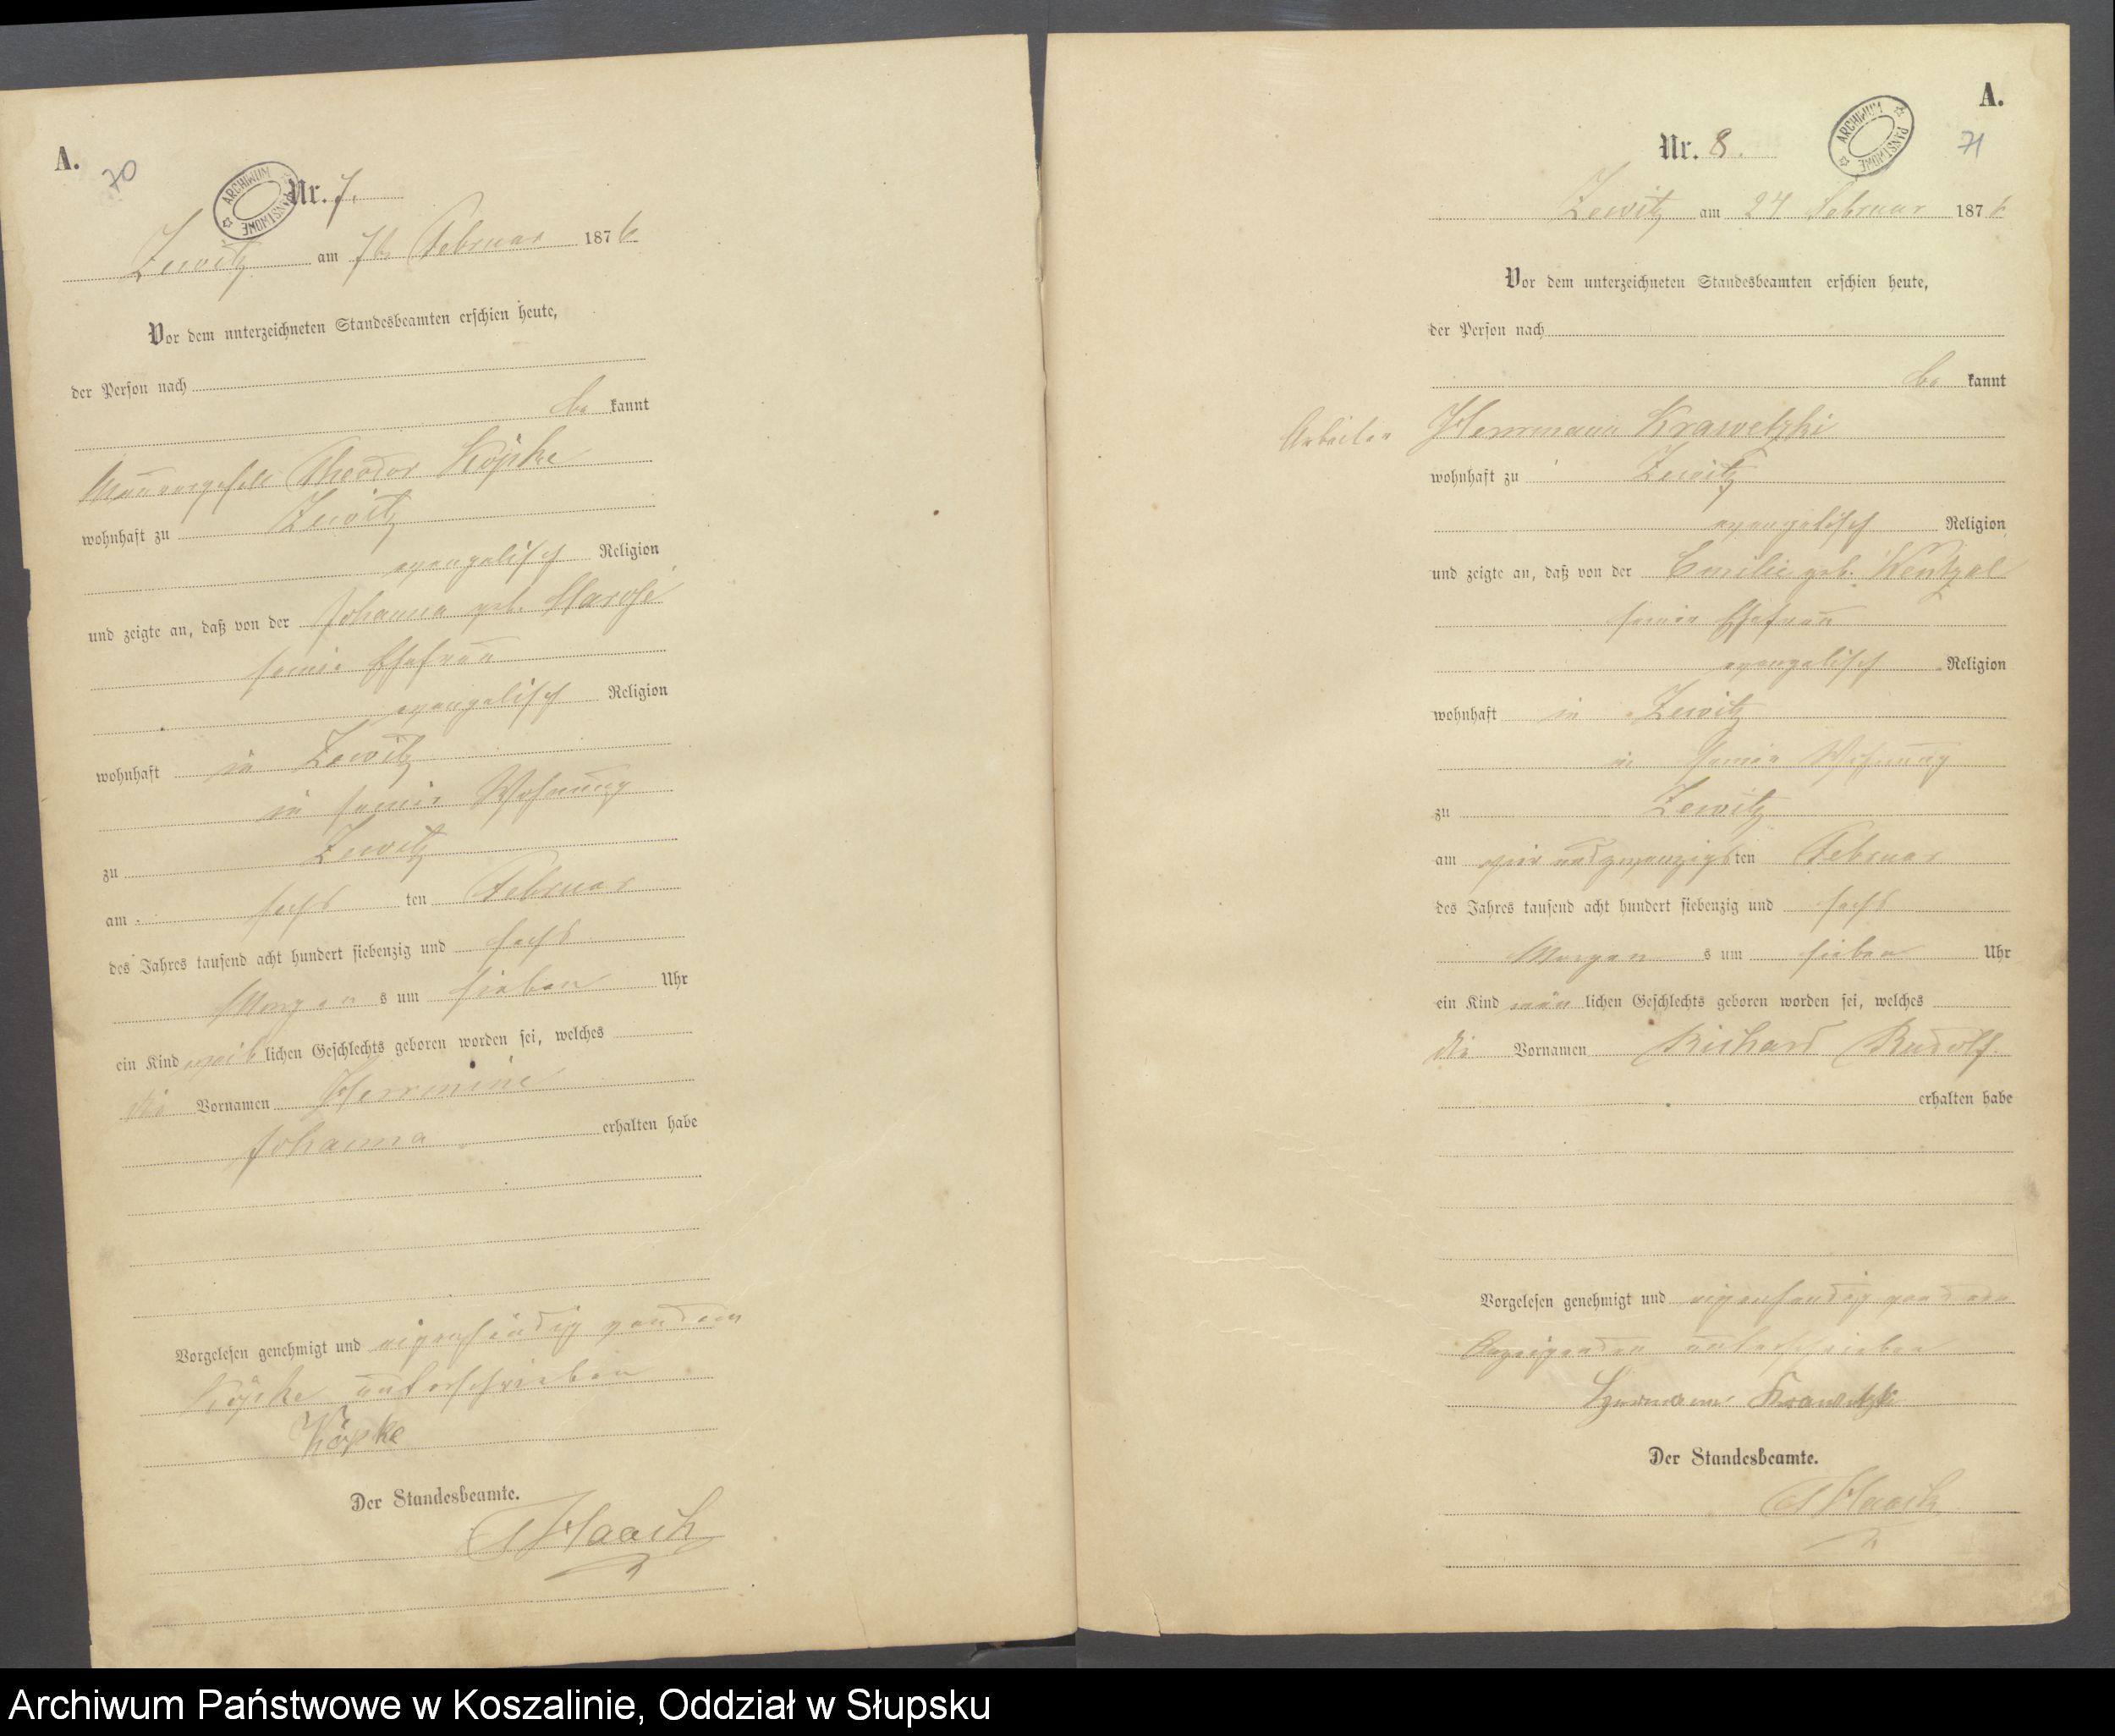 A.
70
ARCHIWUM PAŃSTWOWE
Nr. 7.
Zewitz am 7ten Februar 1876
Vor dem unterzeichneten Standesbeamten erschien heute,
der Person nach
be kannt
Maurergesell Theodor Köpke
wohnhaft zu Zewitz
evangelisch Religion
und zeigte an, daß von der Johanna geb.
seiner Ehefrau
evangelisch Religion
wohnhaft in Zewitz
in seiner Wohnung
zu Zewitz
am sechs ten Februar
des Jahres tausend acht hundert siebenzig und sechs
Morgen s um sieben Uhr
ein Kind weib lichen Geschlechts geboren worden sei, welches
die Vornamen Hermine
Johanna erhalten habe
Vorgelesen genehmigt und eigenhändig von dem
Köpke unterschrieben
Köpke
Der Standesbeamte.
Haack
A.
71
ARCHIWUM PAŃSTWOWE
Nr. 8.
Zewitz am 24 Februar 1876
Vor dem unterzeichneten Standesbeamten erschien heute,
der Person nach
be kannt
Arbeiter Herrmann Krawetzki
wohnhaft zu Zewitz
evangelisch Religion
und zeigte an, daß von der Emilie geb. Wentzel
seiner Ehefrau
evangelisch Religion
wohnhaft in Zewitz
in seiner Wohnung
zu Zewitz
am vier und zwanzigsten Februar
des Jahres tausend acht hundert siebenzig und sechs
Morgen s um sieben Uhr
ein Kind män lichen Geschlechts geboren worden sei, welches
die Vornamen Richard Rudolf.
erhalten habe
Vorgelesen genehmigt und eigenhändig von dem
Anzeigenden unterschrieben
Herrmann Krawetzki
Der Standesbeamte.
Haack
Archiwum Państwowe w Koszalinie, Oddział w Słupsku